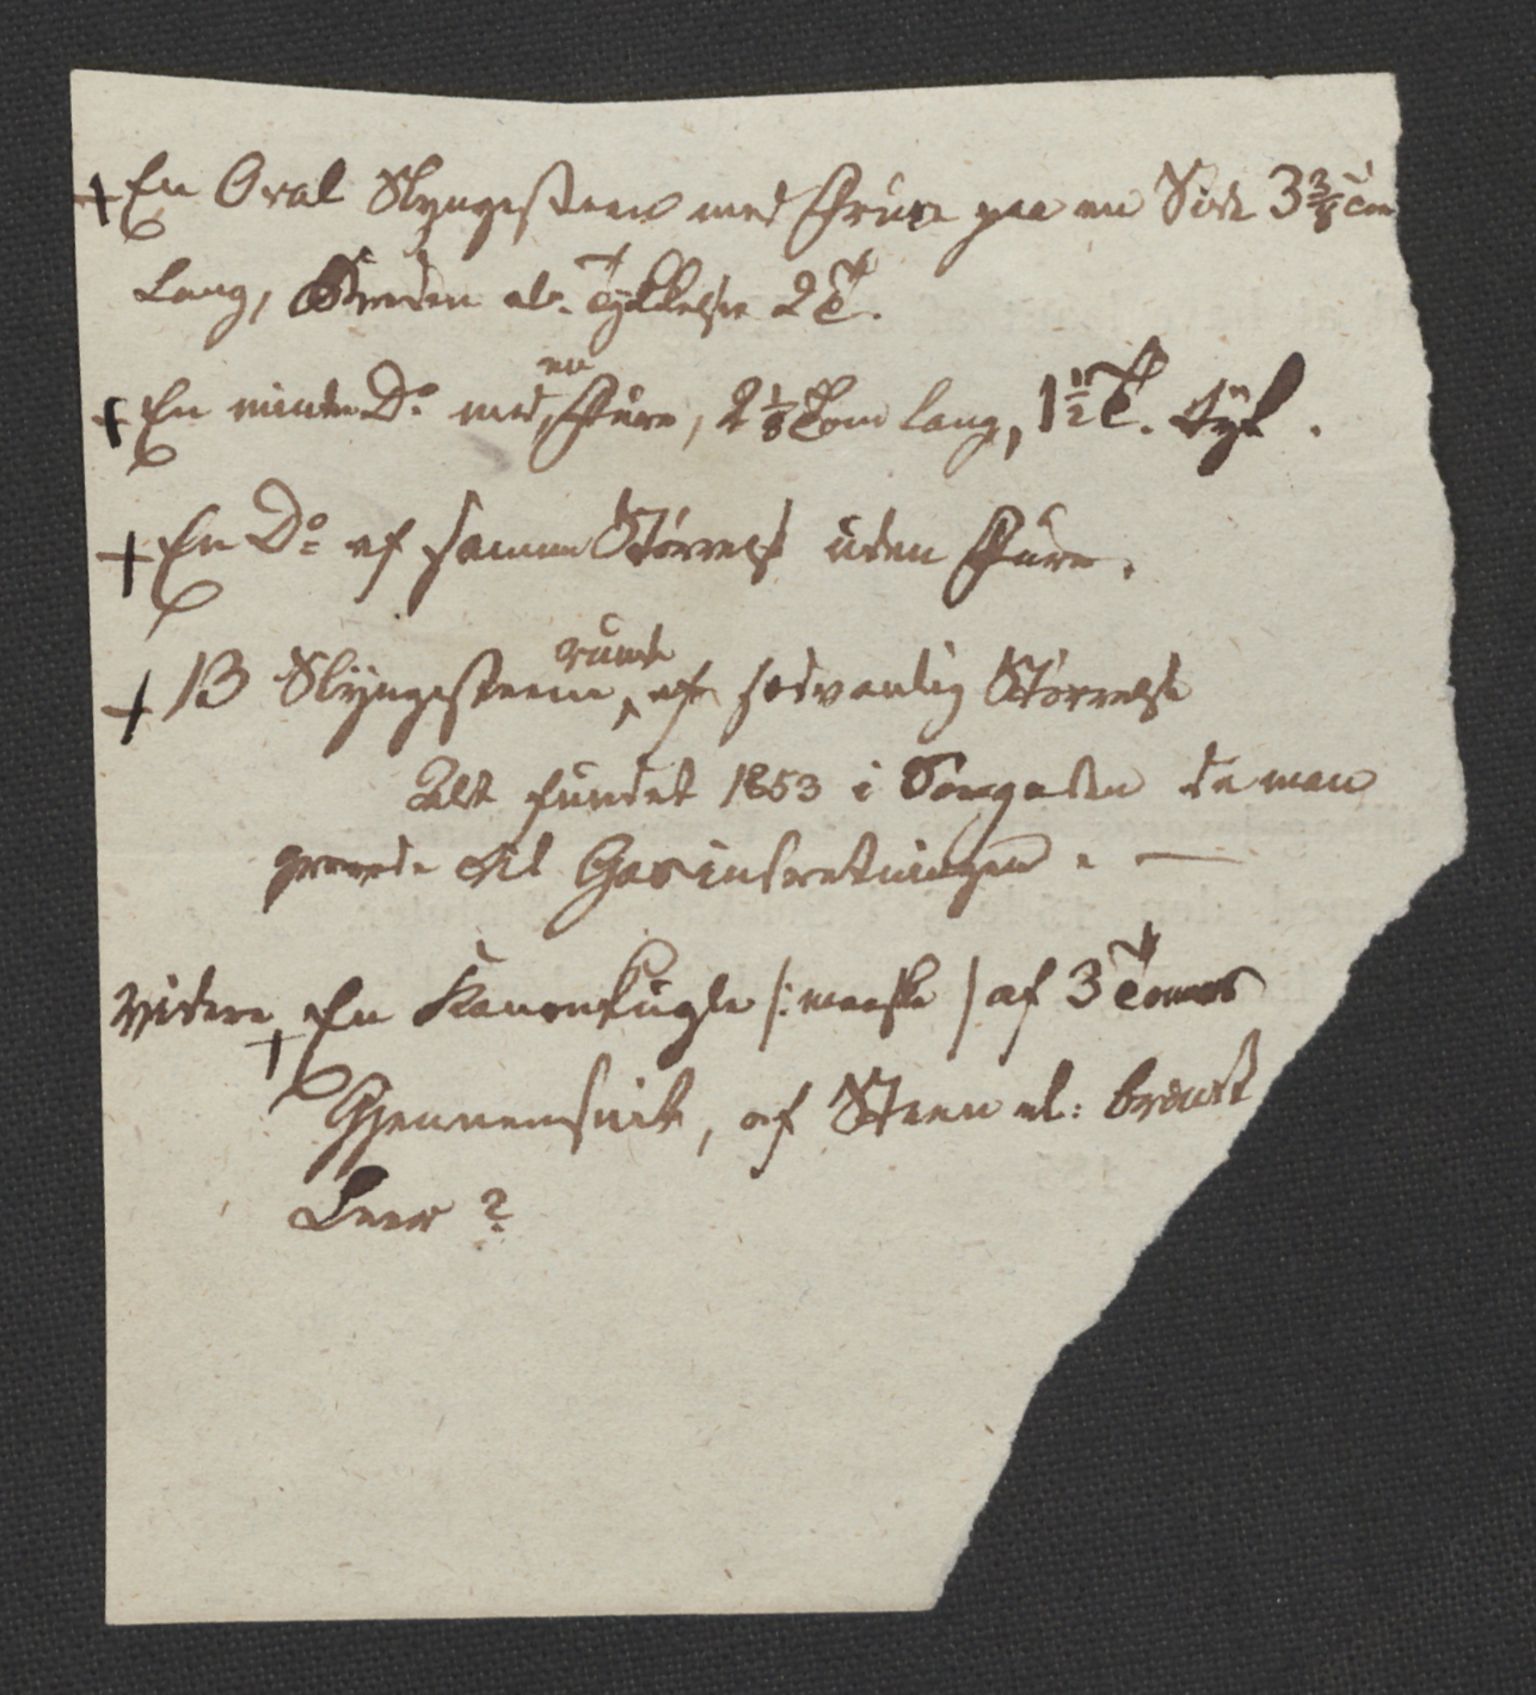 + En Oval Slyngesteen med Fure paa en Side 3 3/8 Tom
lang, Breden el. Tykkelse 2 T.
+ En mindre Do med en Fure, 2 1/8 Tom lang, 1 1/2 T. tyk.
+ En Do af samme Størrelse uden Fure.
+ 13 Slyngesteene, runde af sædvanlig Størrelse
Alt fundet 1853 i Tomgaden da man
gravede til Gasindretningen. —
Videre + En Kanonkugle /: maaske / af 3 Tommes
Gjennemsnit, af Steen el: brændt
Leer ?